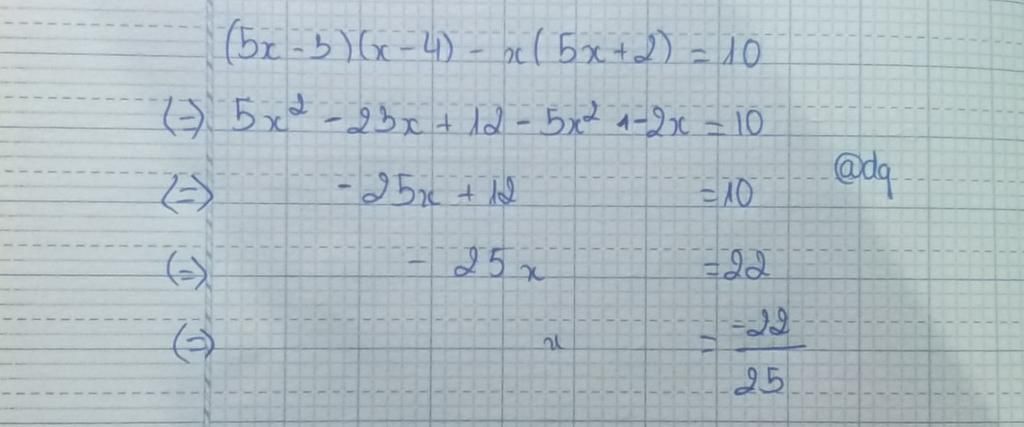 (5x - 3)(x - 4) - x(5x + 2) = 10
(=) 5x² - 23x + 12 - 5x² - 2x = 10
@dq
(=) - 25x + 12 = 10
(=) - 25x = 22
(=) x = -22/25